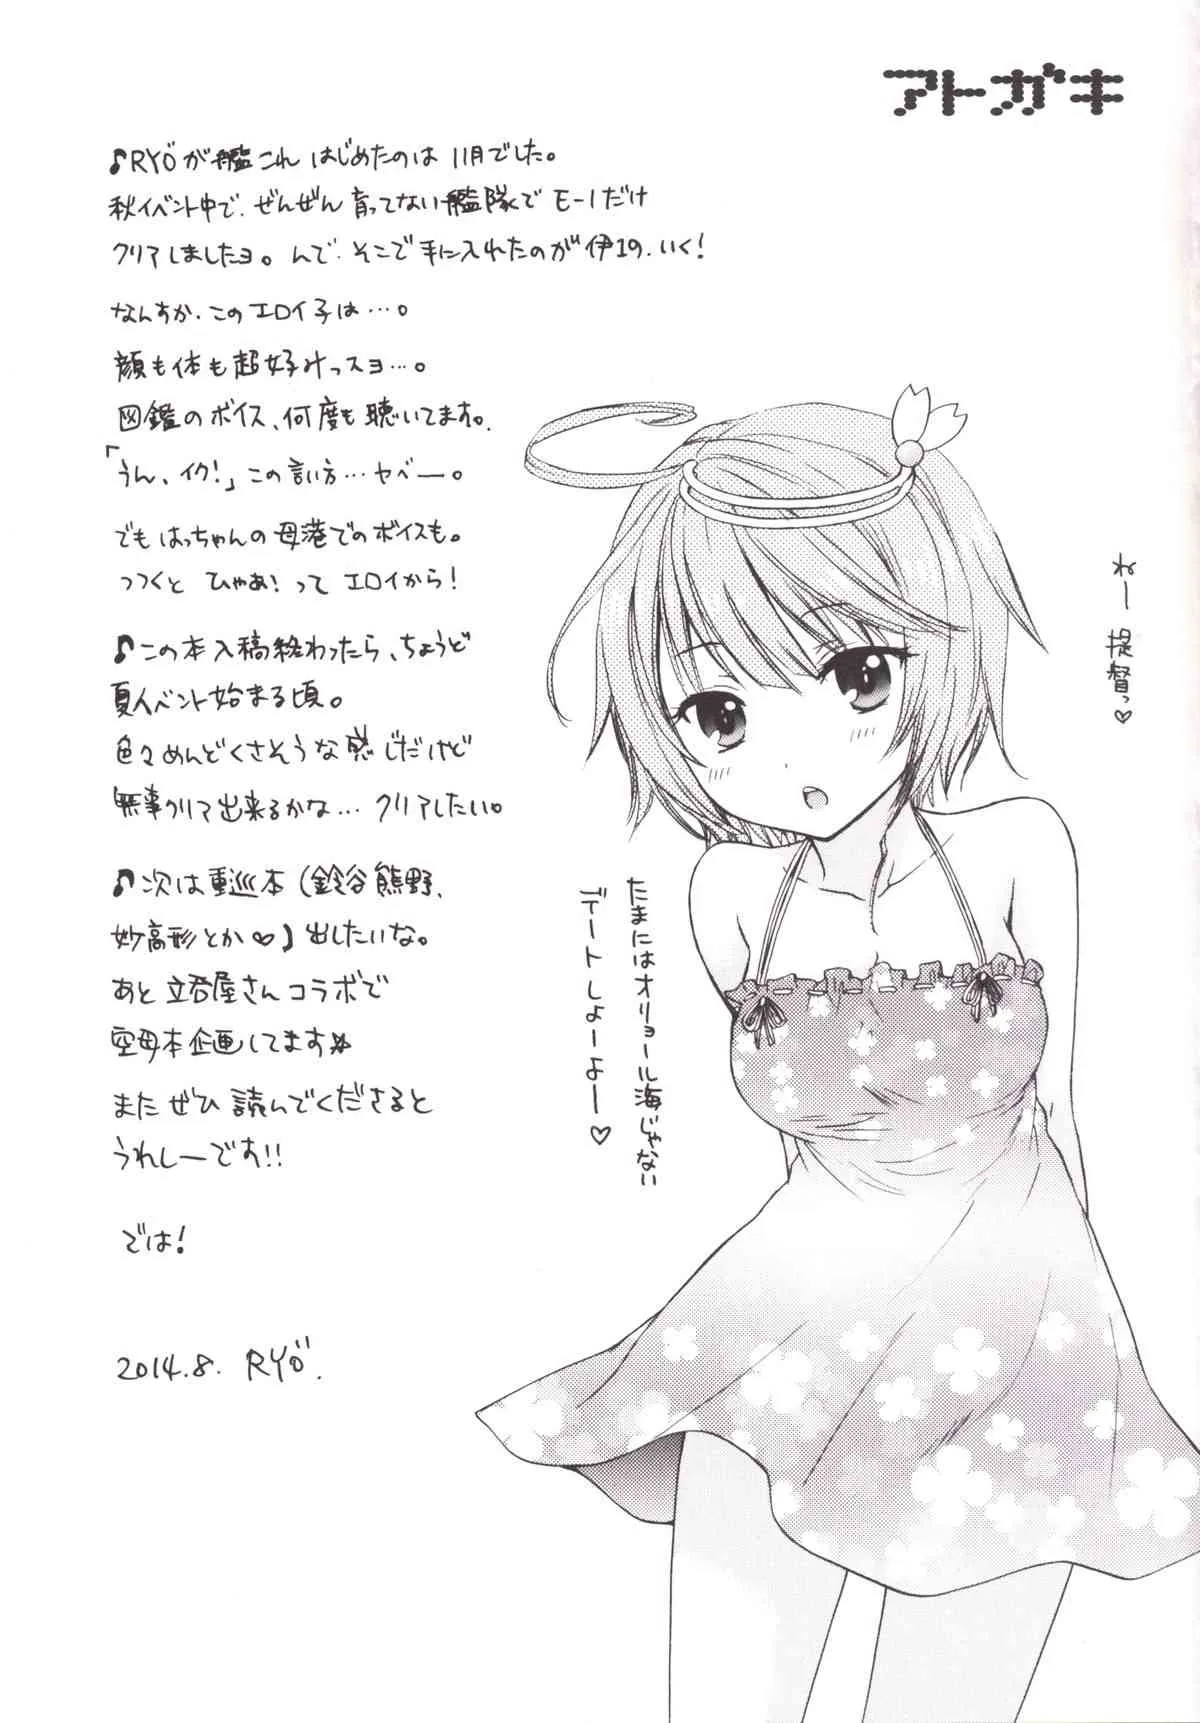 アトガキ
♪RYOが艦これ はじめたのは 11月でした。
秋イベント中で、ぜんぜん育ってない艦隊で E-1だけ
クリアしましたョ。んで、そこで手に入れたのが伊19、いく!
なんすか、このエロイ子は…。
顔も体も超好みっスョ…。
図鑑のボイス、何度も聴いてます。
「うん、イク!」この言い方…ヤベー。
でもはっちゃんの母港でのボイスも。
つつくと ひゃあ!って エロイから!
♪この本入稿終わったら、ちょうど
夏イベント始まる頃。
色々めんどくさそうな感じだけど
無事クリア出来るかな…クリアしたい。
♪次は重巡本(鈴谷熊野、
妙高形とか♡)出したいな。
あと立呑屋さんコラボで
空母本企画してます☆
またぜひ読んでくださると
うれしーです!!
では!
2014.8. RYO.
ねー 提督っ♡
たまにはオリョール海じゃない
デートしよーよー♡